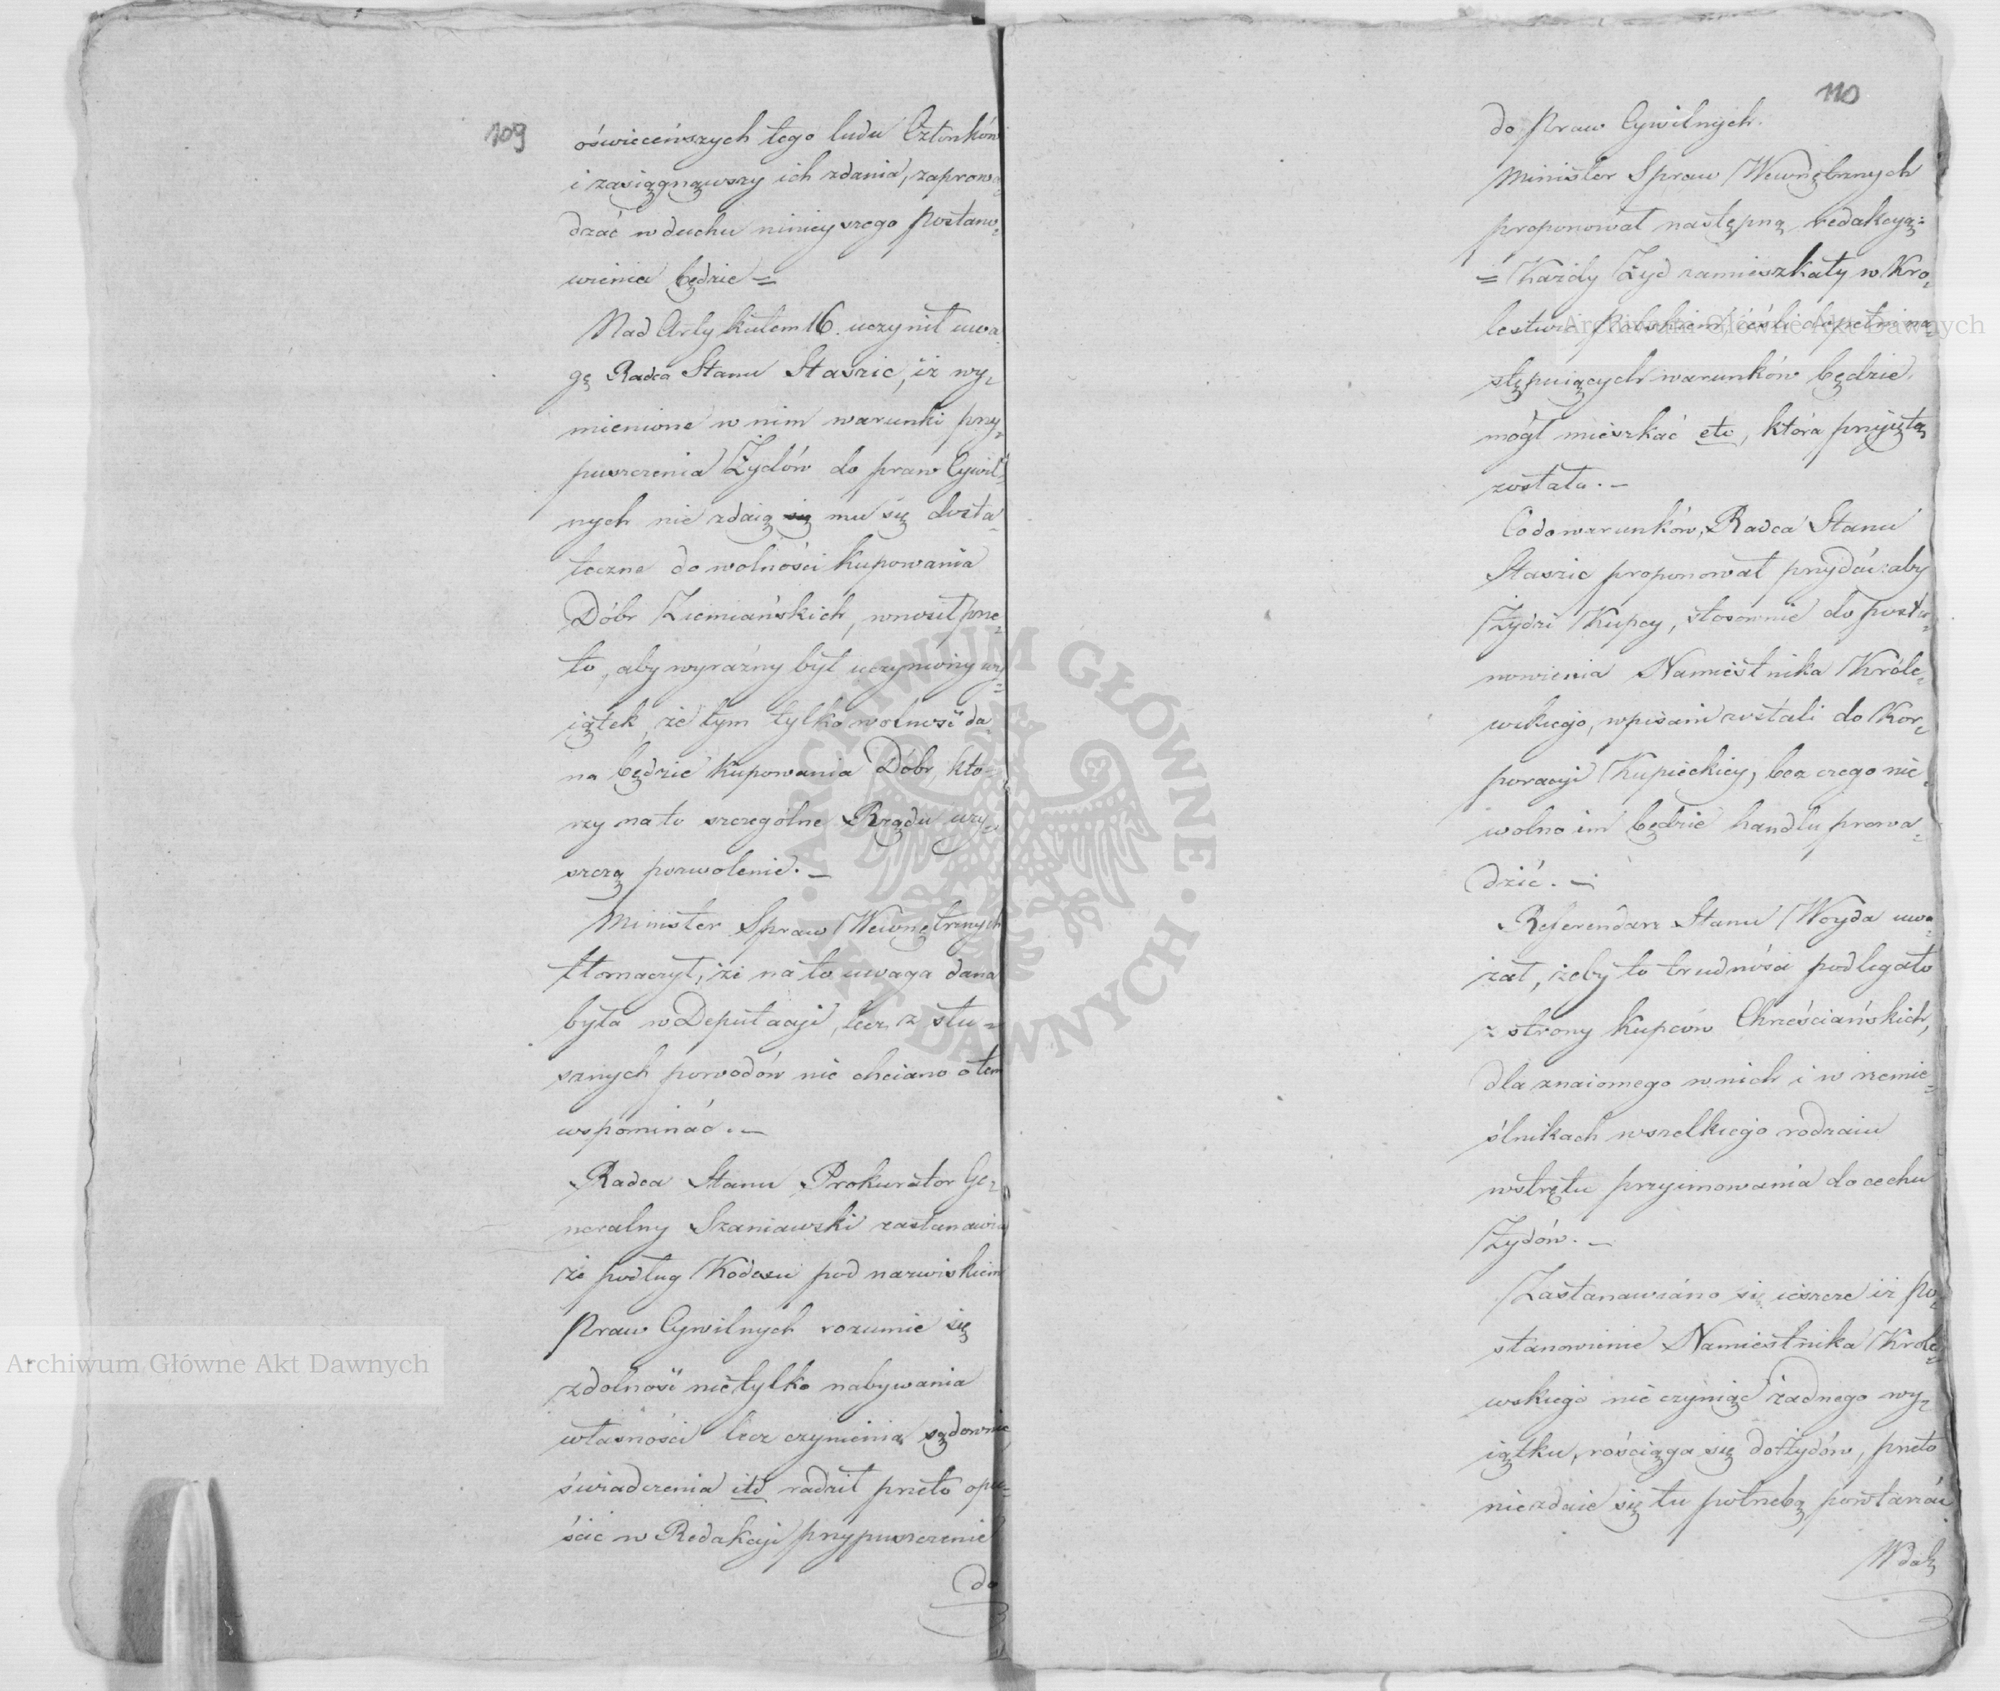 109
oświeceńszych tego ludu Członków
i zasiągnąwszy ich zdania, zaprowa„
dzać w duchu ninieyszego Postano„
wienia będzie =
Nad Artykułem 16. uczynił uwa„
gę Radca Stanu Staszic, iż wy„
mienione w nim warunki przy„
puszczenia Żydów do praw Cywil„
nych nie zdaią się mu się dosta„
teczne do wolności kupowania
Dóbr Ziemiańskich, wnosił prze„
to, aby wyraźny był uczyniony wy„
iątek, że tym tylko wolność da„
na będzie kupowania Dóbr, któ„
rzy na to szczególne Rządu uzy„
szczą pozwolenie. —
Minister Spraw Wewnętrznych
tłomaczył, że na to uwaga dana
była w Deputacyi, lecz z słu„
sznych powodów nie chciano o tem
wspominać. —
Radca Stanu Prokurator Ge„
neralny Szaniawski zastanawiał
że podług Kodexu pod nazwiskiem
Praw Cywilnych rozumie się
zdolność nietylko nabywania
własności lecz czynienia sądownie
świadczenia itd radził przeto opu„
ścić w Redakcyi przypuszczenie
do
110
do Praw Cywilnych.
Minister Spraw Wewnętrznych
proponował następną redakcyą:
= Każdy Żyd zamieszkały w Kró„
lestwie Polskiem, ieśli dopełni na„
stępuiących warunków będzie
mógł mieszkać etc, która przyięta
została. —
Co do warunków, Radca Stanu
Staszic proponował przydać: aby
Żydzi Kupcy, stosownie do posta„
nowienia Namiestnika Króle„
wskiego, wpisani zostali do Kor„
poracyi Kupieckiey, bez czego nie„
wolno im będzie handlu prowa„
dzić. —
Referendarz Stanu Woyda uwa„
żał, żeby to trudności podlegało
z strony kupców Chrześciańskich,
dla znaiomego w nich i w rzemie„
ślnikach wszelkiego rodzaiu
wstrętu przyimowania do cechu
Żydów. —
Zastanawiano się ieszcze iż Po„
stanowienie Namiestnika Króle„
wskiego nie czyniąc żadnego wy„
iątku, rościąga się do Żydów, przeto
nie zdaie się tu potrzebą powtarzać
W dal„
Archiwum Główne Akt Dawnych
Archiwum Główne Akt Dawnych
ARCHIWUM GŁÓWNE AKT DAWNYCH